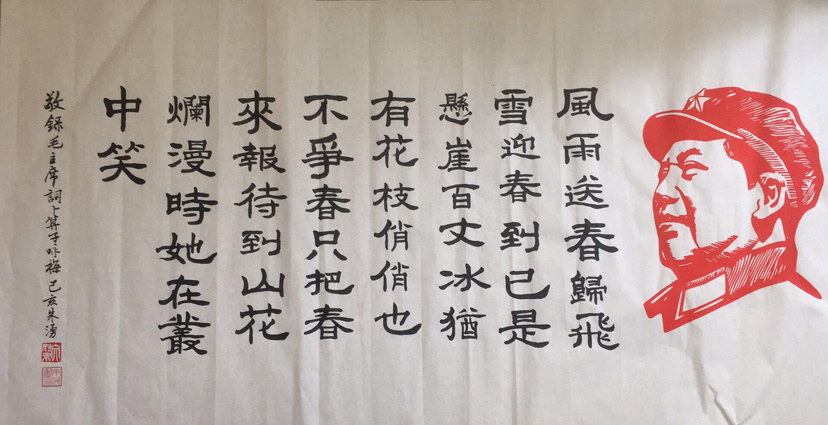 風雨送春歸飛
雪迎春到已是
懸崖百丈冰猶
有花枝俏俏也
不爭春只把春
來報待到山花
爛漫時她在叢
中笑
敬錄毛主席詞卜算子咏梅己亥朱湧